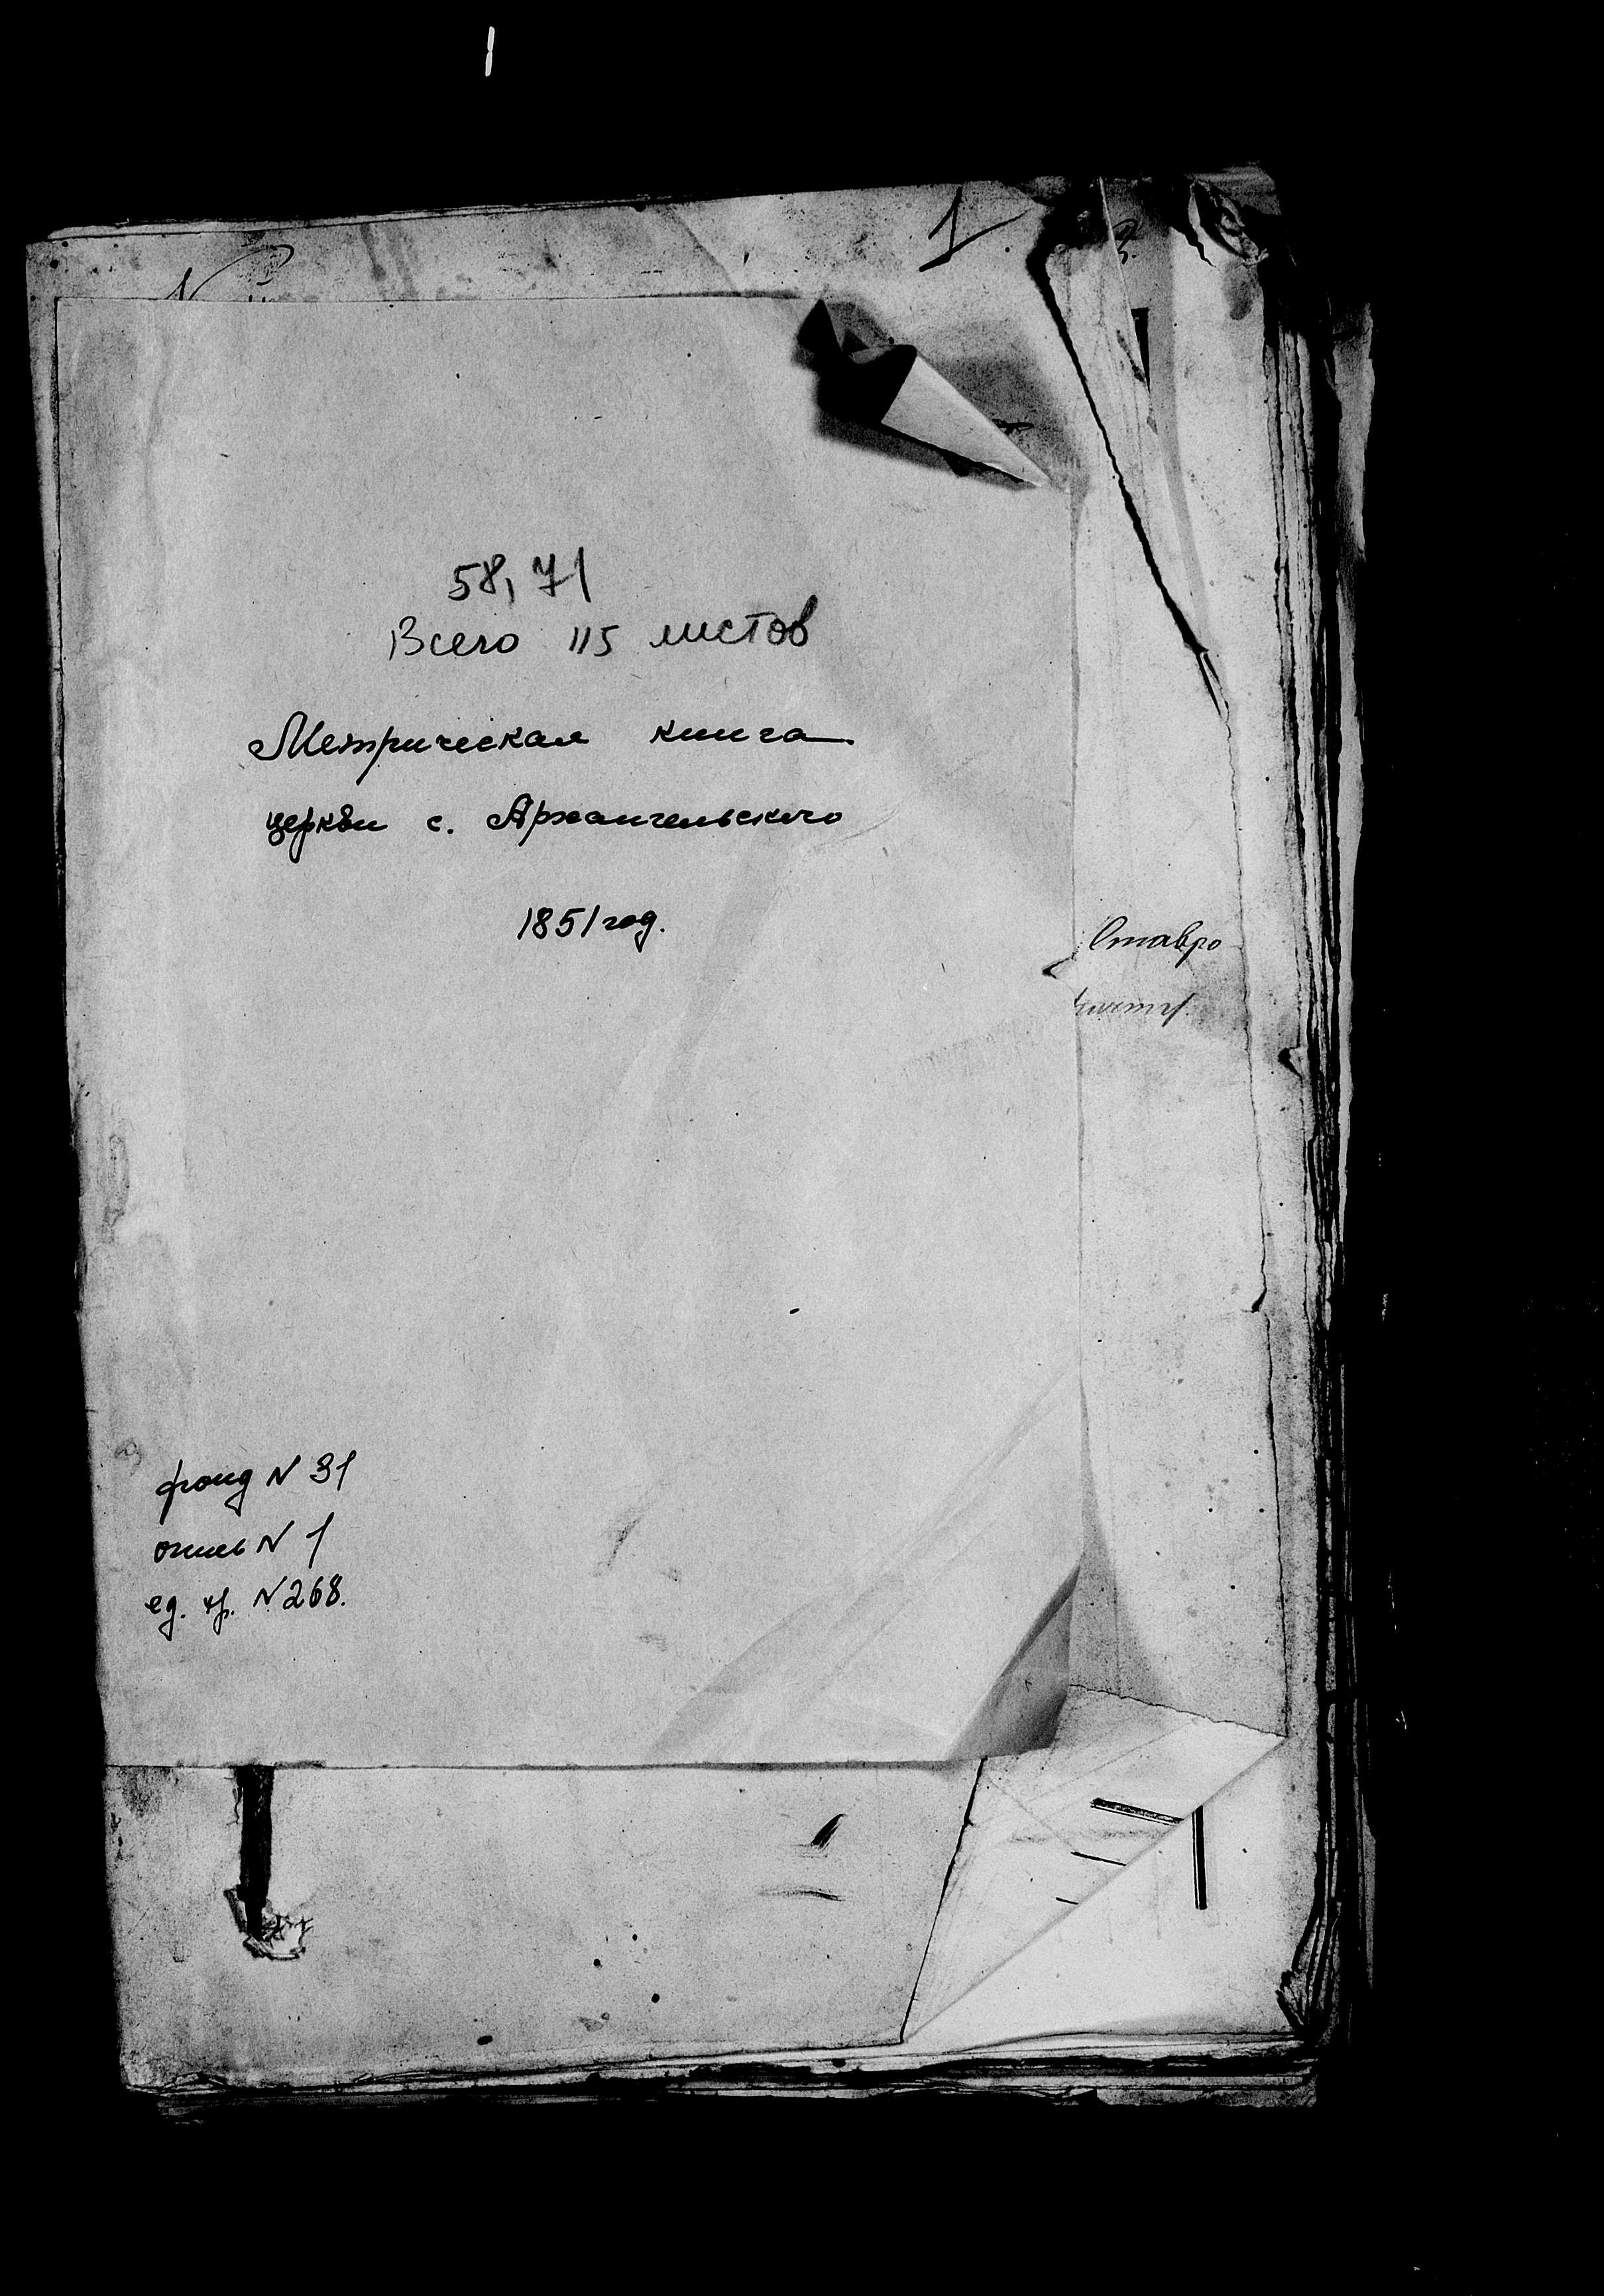 1
58, 71
Всего 115 листов
Метрическая книга
церкви с. Архангельского
1851 год.
Ставро
фонд N 31
опись N 1
ед. хр. N 268.